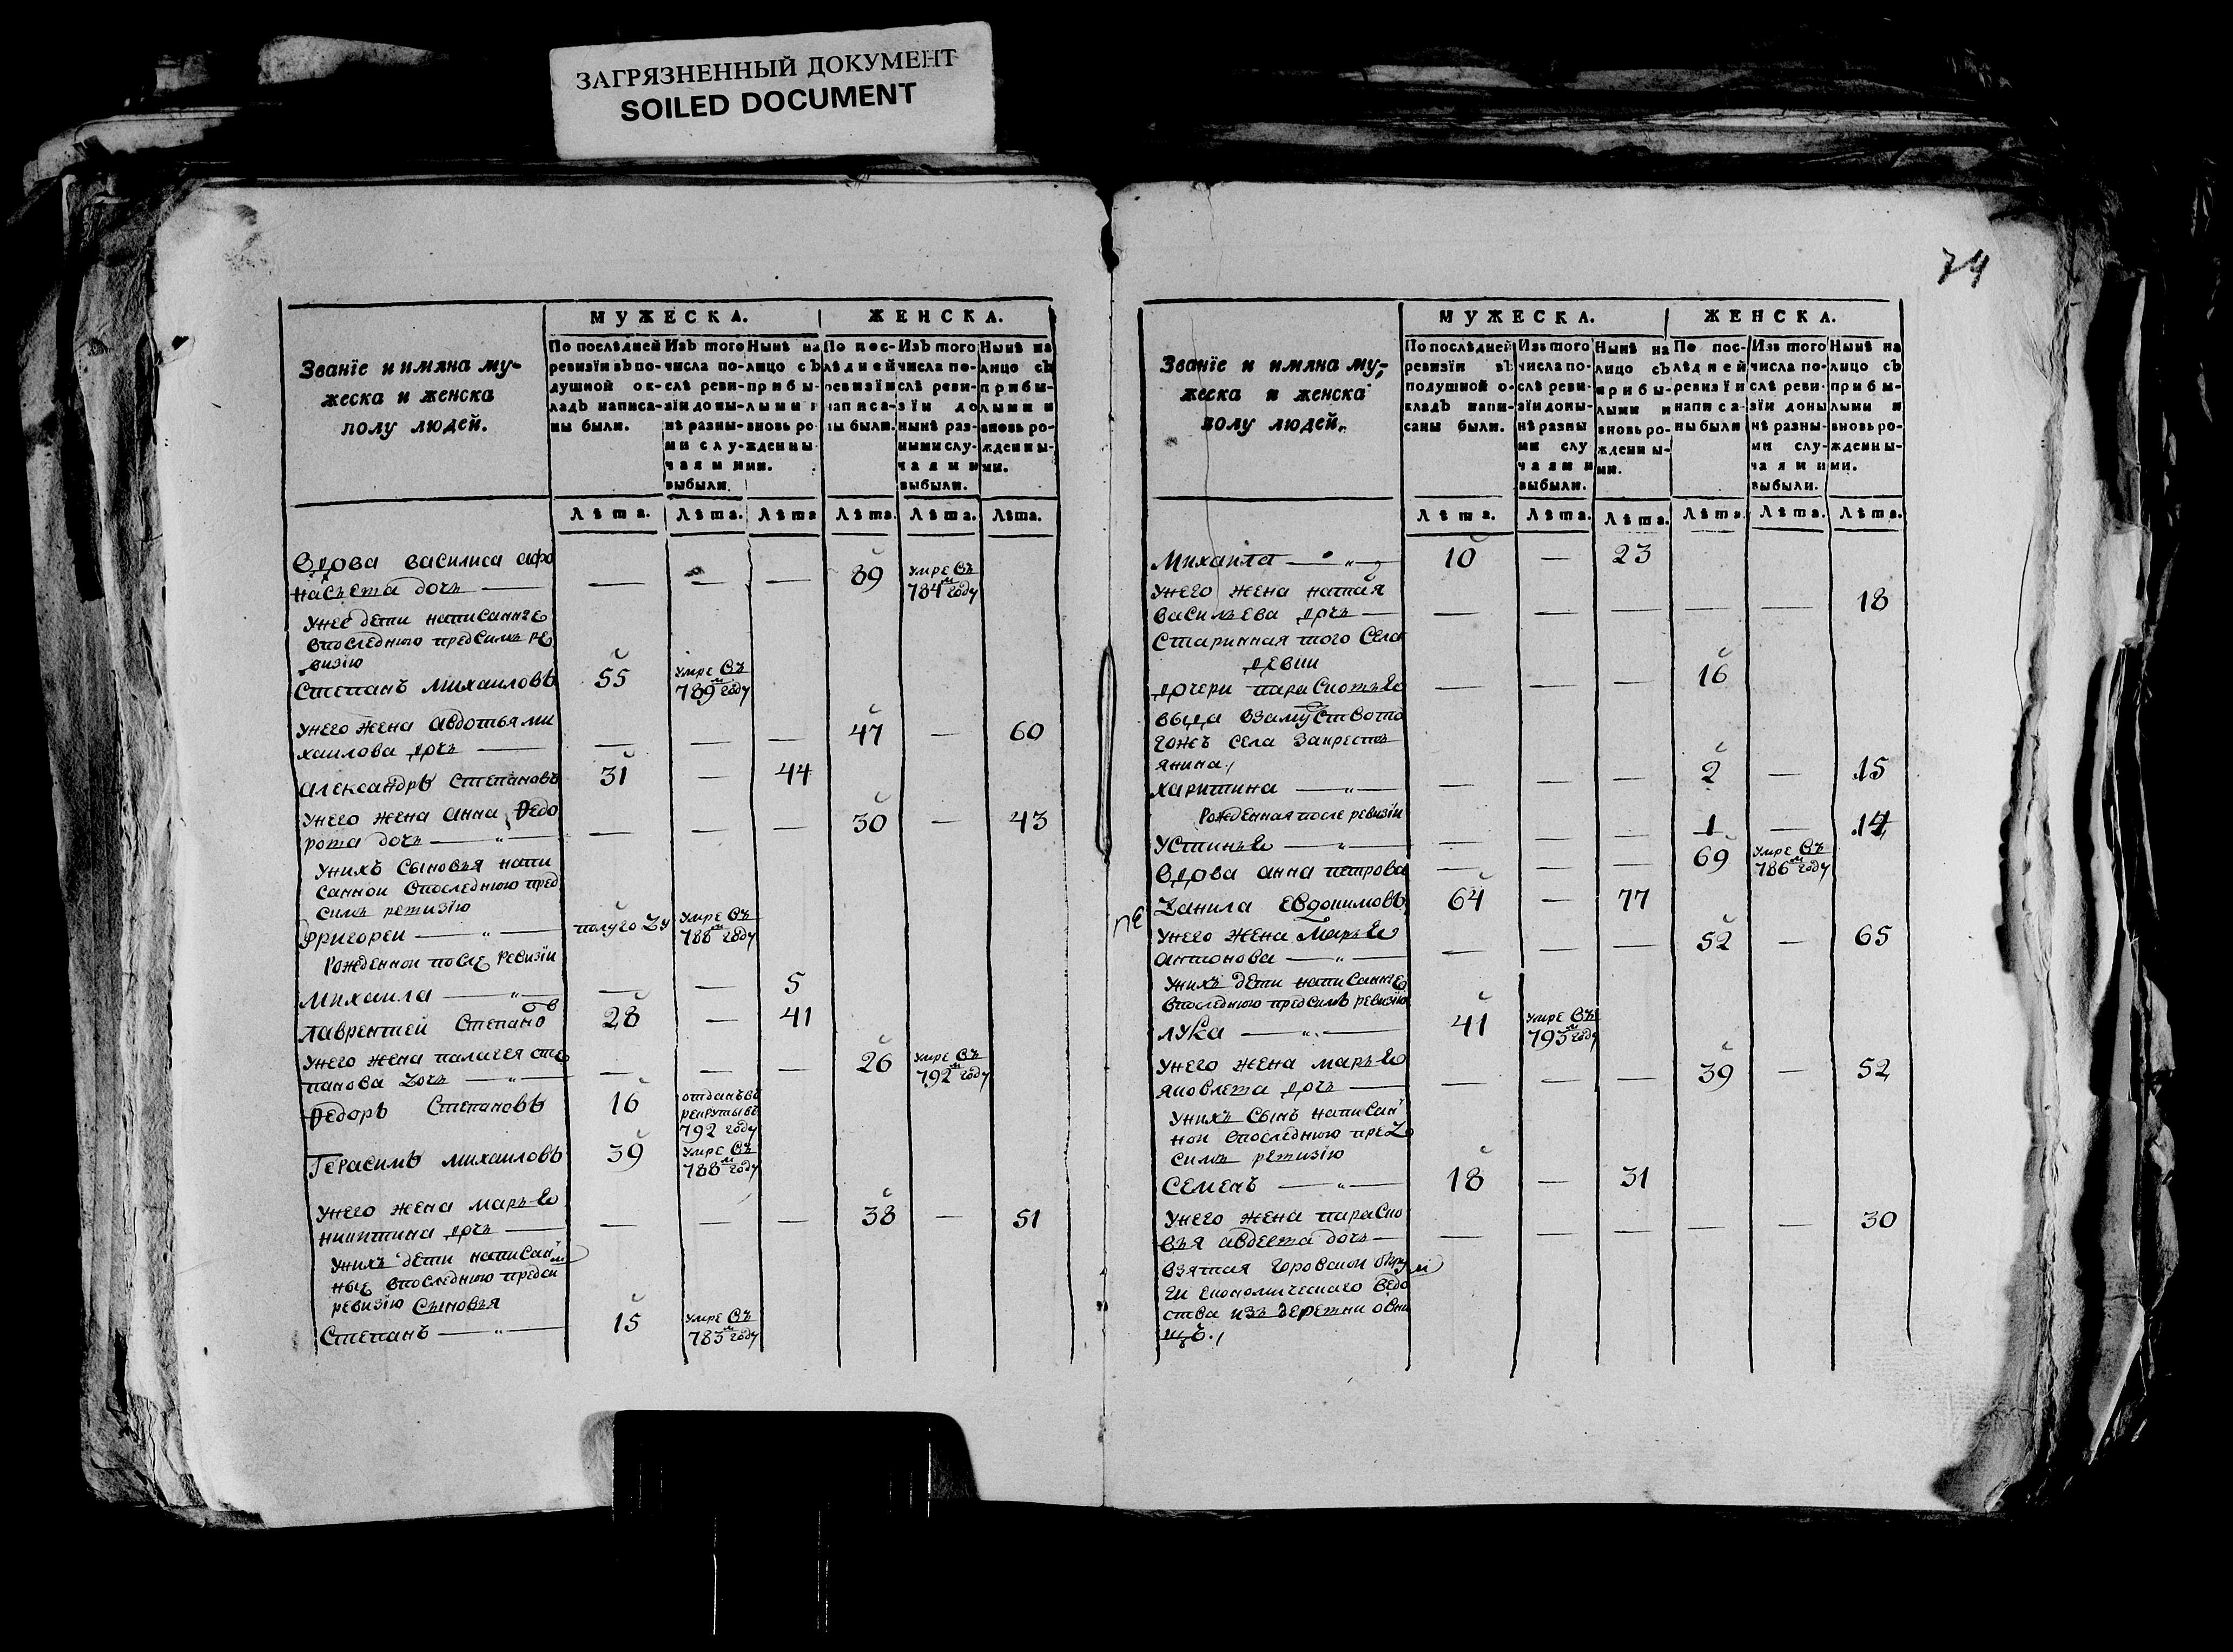 ЗАГРЯЗНЕННЫЙ ДОКУМЕНТ
SOILED DOCUMENT
74
Званїе и имяна му-
жеска и женска
полу людей.
МУЖЕСКА.
ЖЕНСКА.
По послѣдней ревизїи въ по-душной ок-ладъ написа-ны были.
Изъ того числа по-слѣ реви-зїи доны-нѣ разны-ми слу-чаями выбыли.
Нынѣ на лицо съ прибы-лыми и вновь ро-жденны-ми.
По пос-лѣдней ревизїи написа-ны были.
Изъ того числа по-слѣ реви-зїи до нынѣ раз-ными слу-чаями выбыли.
Нынѣ на лицо съ прибы-лыми и вновь ро-жденны-ми.
Лѣта. Лѣта. Лѣта Лѣта. Лѣта. Лѣта.
Вдова василиса афо
насьева дочь — — — — 89 умре въ 784м году
унее дети написанные
впоследнюю предсимъ ре
визїю
Степанъ михаиловъ 55 умре въ 789м году
унего жена авдотья ми
хаилова дочь — — — — 47 — 60
александръ степановъ 31 — 44
унего жена анна федо
рова дочь — „ — — — — 30 — 43
унихъ сыновья напи
саннои впоследнюю пред
симъ ревизїю
Григореи — „ — полуго ду умре въ 788м году
рожденнои после ревизїи
михаила — „ — — — 5
лаврентией степановъ 28 — 41
унего жена палагея сте
панова дочь — „ — — — — 26 умре въ 792м году
федоръ степановъ 16 отданъ въ рекруты въ 792 году
Герасимъ михаиловъ 39 умре въ 788м году
унего жена марья
никитина дочь — — — — 38 — 51
унихъ дети написан
ные впоследнюю предсимъ
ревизїю сыновья
Степанъ — „ — 15 умре въ 783м году
Званїе и имяна му-
жеска и женска
полу людей.
МУЖЕСКА.
ЖЕНСКА.
По послѣдней ревизїи въ подушной о-кладъ напи-саны были.
Изъ того числа по-слѣ реви-зїи доны-нѣ разны ми слу чаями выбыли.
Нынѣ на лицо съ прибы-лыми и вновь ро-жденны-ми.
По пос-лѣдней ревизїи написа-ны были
Изъ того числа по-слѣ реви-зїи доны нѣ разны-ми слу-чаями выбыли.
Нынѣ на лицо съ прибы-лыми и вновь ро-жденны-ми.
Лѣта. Лѣта. Лѣта. Лѣта. Лѣта. Лѣта.
Михаила — „ — 10 — 23
унего жена
васильева дочь — — — — — — 18
старинная того села
дочери — — — 16
выда взамуство то
гожъ села закресть
янина.
харитина — „ — — — — 2 — 15
рожденная после ревизїи
устинья — „ — — — — 1 — 14
Вдова анна петрова — — — 69 умре въ 786м году
Данила Евдокимовъ 64 — 77
унего жена марья
антонова — „ — — — — 52 — 65
унихъ дети написанные
впоследнюю предсимъ ревизїю
лука — „ — 41 умре въ 793м году
унего жена марья
яковлева дочь — — — — 39 — 52
унихъ сынъ написан
нои впоследнюю пред
симъ ревизїю
семенъ — „ — 18 — 31
унего жена параско
вья авдеева дочь — — — — — — 30
взятая
ги економическаго ведом
ства изъ деревни